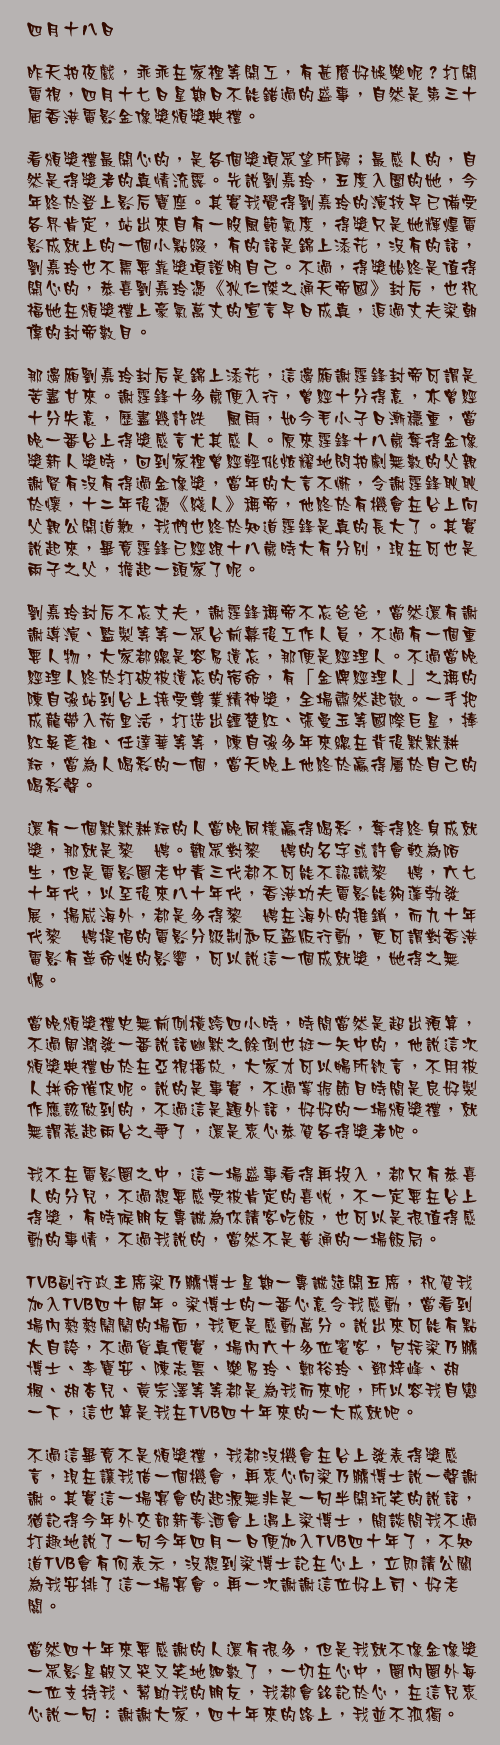 四月十八日
昨天拍夜戲，乖乖在家裡等開工，有甚麼好娛樂呢？打開
電視，四月十七日星期日不能錯過的盛事，自然是第三十
屆香港電影金像獎頒獎典禮。
看頒獎禮最開心的，是各個獎項眾望所歸；最感人的，自
然是得獎者的真情流露。先說劉嘉玲，五度入圍的她，今
年終於登上影后寶座。其實我覺得劉嘉玲的演技早已備受
各界肯定，站出來自有一股風範氣度，得獎只是她輝煌電
影成就上的一個小點綴，有的話是錦上添花，沒有的話，
劉嘉玲也不需要靠獎項證明自己。不過，得獎始終是值得
開心的，恭喜劉嘉玲憑《狄仁傑之通天帝國》封后，也祝
福她在頒獎禮上豪氣萬丈的宣言早日成真，追過丈夫梁朝
偉的封帝數目。
那邊廂劉嘉玲封后是錦上添花，這邊廂謝霆鋒封帝可謂是
苦盡甘來。謝霆鋒十多歲便入行，曾經十分得意，亦曾經
十分失意，歷盡幾許跌 風雨，如今毛小子日漸穩重，當
晚一番台上得獎感言尤其感人。原來霆鋒十八歲奪得金像
獎新人獎時，回到家裡曾經輕佻炫耀地問拍劇無數的父親
謝賢有沒有得過金像獎，當年的大言不慚，今謝霆鋒耿耿
於懷，十二年後憑《綫人》稱帝，他終於有機會在台上向
父親公開道歉，我們也終於知道霆鋒是真的長大了。其實
說起來，畢竟霆鋒已經跟十八歲時大有分別，現在可也是
兩子之父，擔起一頭家了呢。
劉嘉玲封后不忘丈夫，謝霆鋒稱帝不忘爸爸，當然還有謝
謝導演、監製等等一眾台前幕後工作人員，不過有一個重
要人物，大家都總是容易遺忘，那便是經理人。不過當晚
經理人終於打破被遺忘的宿命，有「金牌經理人」之稱的
陳自強站到台上接受專業精神獎，全場肅然起敬。一手把
成龍帶入荷里活，打造出鍾楚紅、張曼玉等國際巨星，捧
紅吳彥祖、任達華等等，陳自強多年來總在背後默默耕
耘，當為人喝彩的一個，當天晚上他終於贏得屬於自己的
喝彩聲。
還有一個默默耕耘的人當晚同樣贏得喝彩，奪得終身成就
獎，那就是黎 娉。觀眾對黎 娉的名字或許會較為陌
生，但是電影圈老中青三代都不可能不認識黎 娉，六七
十年代，以至後來八十年代，香港功夫電影能夠蓬勃發
展，揚威海外，都是多得黎 娉在海外的推銷，而九十年
代黎 娉提倡的電影分級制和反盜版行動，更可謂對香港
電影有革命性的影響，可以說這一個成就獎，她得之無
愧。
當晚頒獎禮史無前例橫跨四小時，時間當然是超出預算，
不過周潤發一番說話幽默之餘倒也挺一矢中的，他說這次
頒獎典禮由於在亞視播放，大家才可以暢所欲言，不用被
人拼命催促呢。說的是事實，不過掌握節目時間是良好製
作應該做到的，不過這是題外話，好好的一場頒獎禮，就
無謂惹起兩台之爭了，還是衷心恭賀各得獎者吧。
我不在電影圈之中，這一場盛事看得再投入，都只有恭喜
人的分兒，不過想要感受被肯定的喜悅，不一定要在台上
得獎，有時候朋友專誠為你請客吃飯，也可以是很值得感
動的事情，不過我說的，當然不是普通的一場飯局。
TVB副行政主席梁乃鵬博士星期一專誠筵開五席，祝賀我
加入TVB四十周年。梁博士的一番心意令我感動，當看到
場內熱熱鬧鬧的場面，我更是感動萬分。說出來可能有點
太自誇，不過貨真價實，場內六十多位賓客，包括梁乃鵬
博士、李寶安、陳志雲、樂易玲、鄭裕玲、鄧梓峰、胡
楓、胡杏兒、黃宗澤等等都是為我而來呢，所以容我自戀
一下，這也算是我在TVB四十年來的一大成就吧。
不過這畢竟不是頒獎禮，我都沒機會在台上發表得獎感
言，現在讓我借一個機會，再衷心向梁乃鵬博士說一聲謝
謝。其實這一場宴會的起源無非是一句半開玩笑的說話，
猶記得今年外交部新春酒會上遇上梁博士，閒談間我不過
打趣地說了一句今年四月一日便加入TVB四十年了，不知
道TVB會有何表示，沒想到梁博士記在心上，立即請公關
為我安排了這一場宴會。再一次謝謝這位好上司、好老
闆。
當然四十年來要感謝的人還有很多，但是我就不像金像獎
一眾影星般又哭又笑地細數了，一切在心中，圈內圈外每
一位支持我、幫助我的朋友，我都會銘記於心，在這兒衷
心說一句：謝謝大家，四十年來的路上，我並不孤獨。